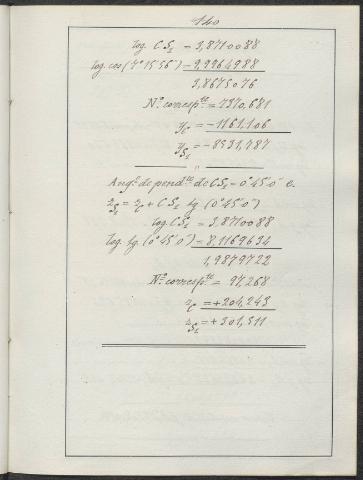 140
log. C S₂ = 3,8710088
log. cos (7°15'56") = 9,9964988
3,8675076
N.º corresp.te = 7370,681
y_c = -1161,106
y_S₂ = -8531,787
"
Ang.º de pend.te de C S₂ = 0°45'0" e.
z_S₂ = z_c + C S₂ tg (0°45'0")
log. C S₂ = 3,8710088
log. tg. (0°45'0") = 8,1169634
1,9879722
N.º corresp.te = 97,268
z_c = +204,243
z_S₂ = +301,511